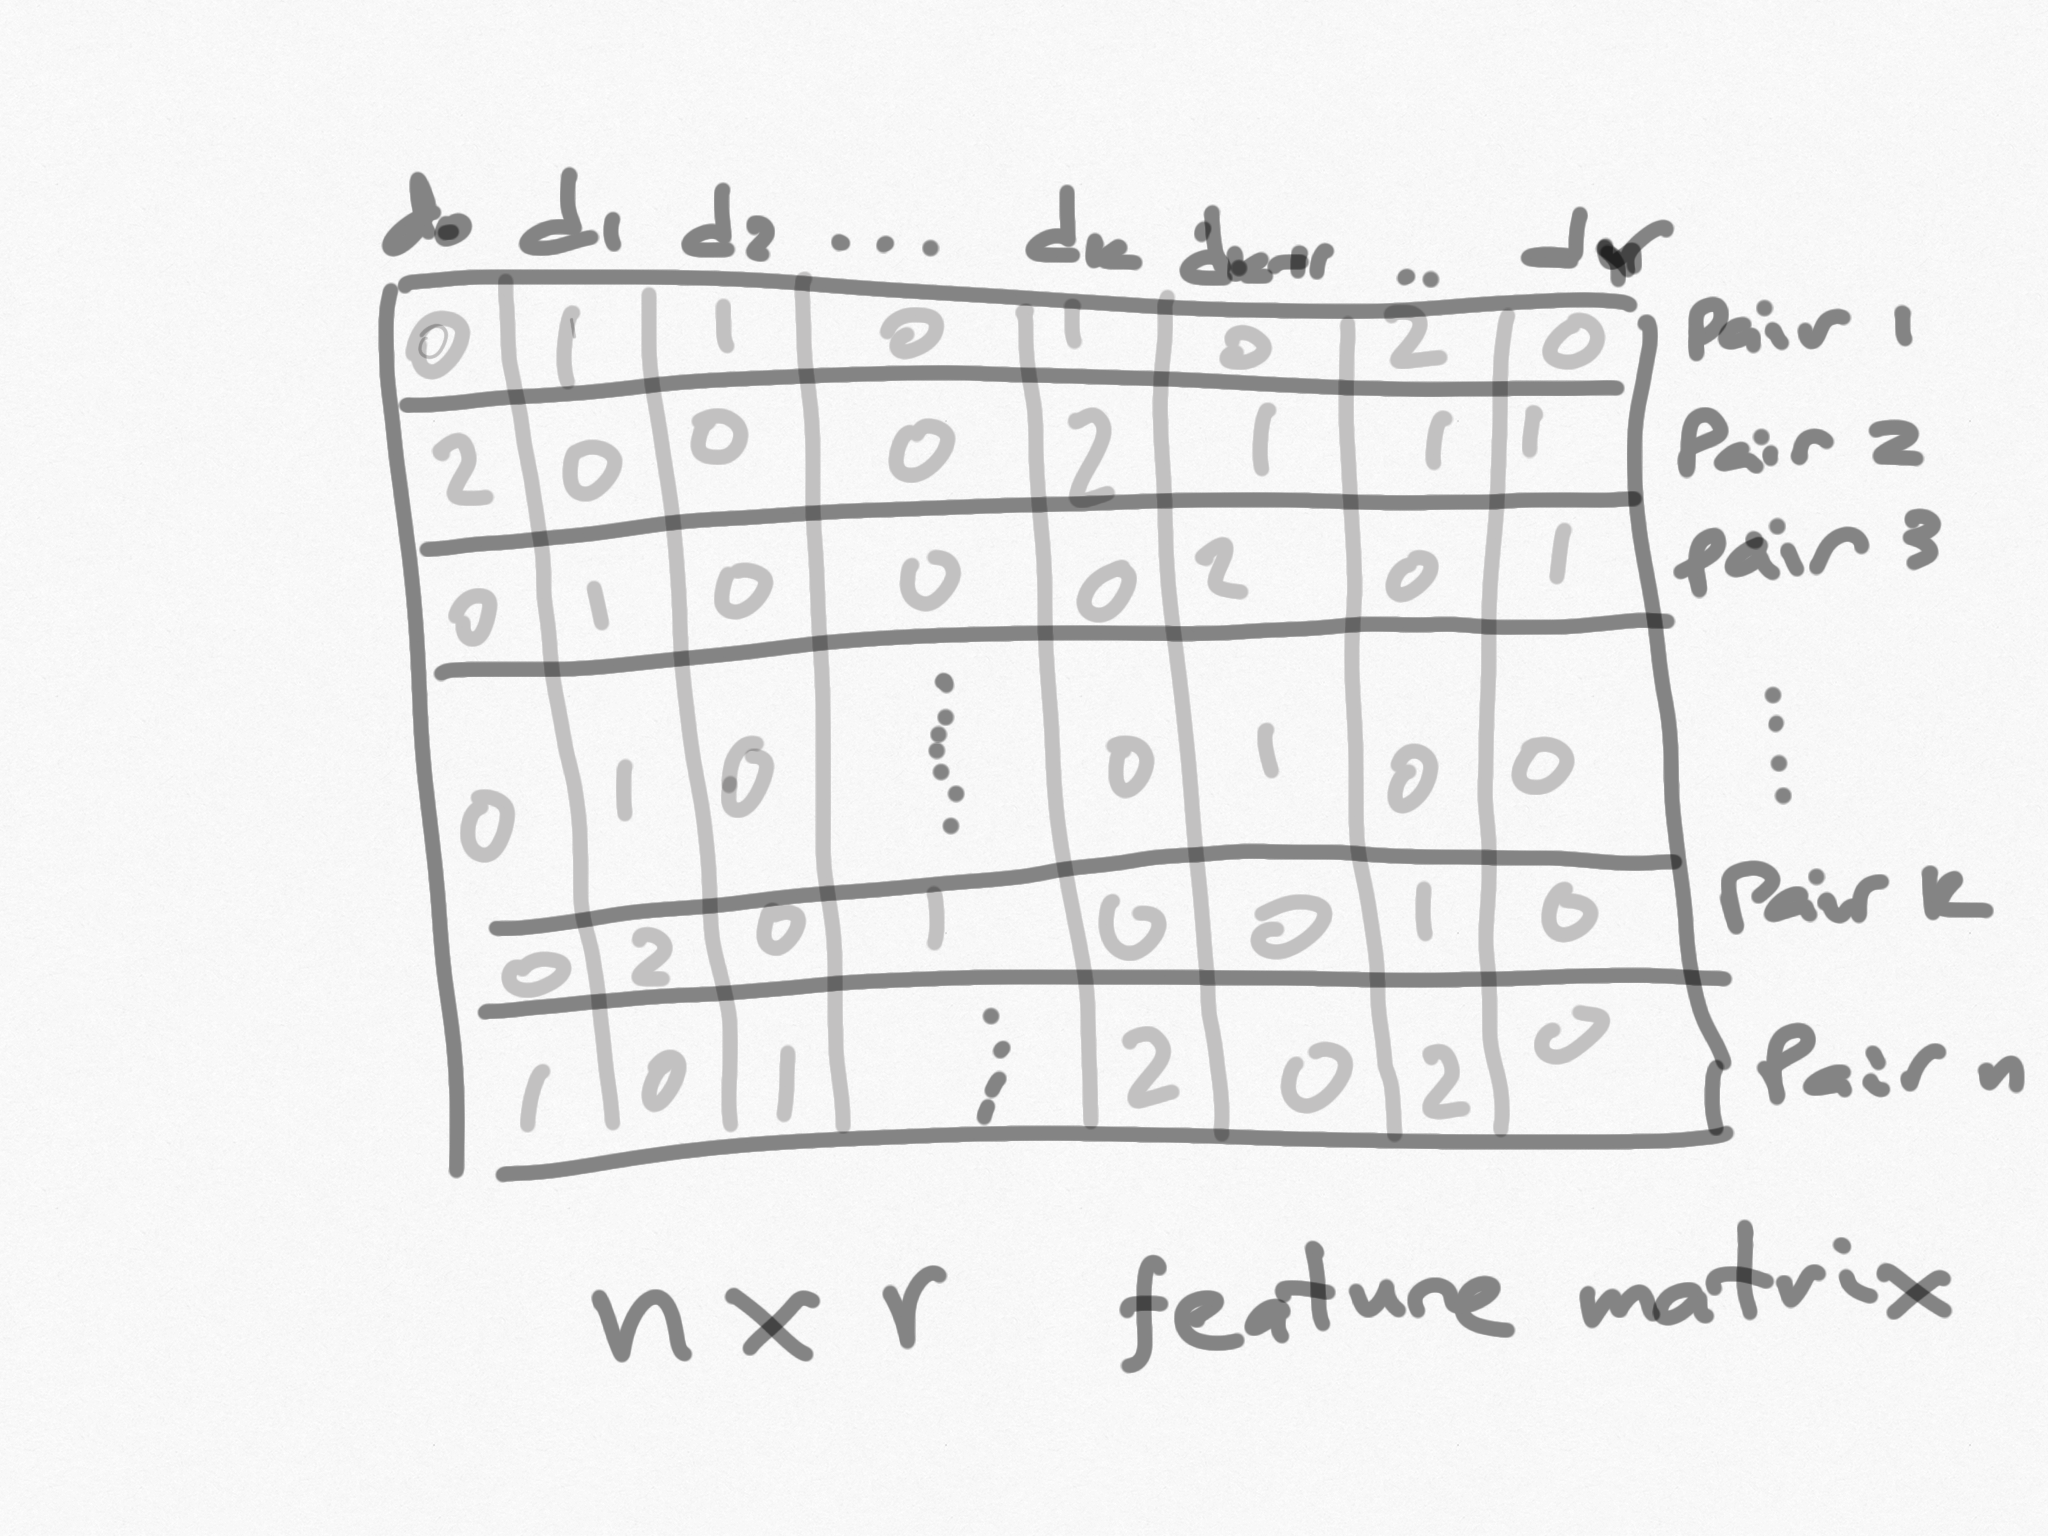 d0 d1 d2 .... dk .. dr
0 1 1 0 1 0 2 0 Pair 1
2 0 0 0 2 1 1 1 Pair 2
0 1 0 0 0 2 0 1 pair 3
0 1 0 0 1 0 0
0 2 0 1 0 0 1 0 Pair k
1 0 1 2 0 2 0 Pair n
n x r feature matrix